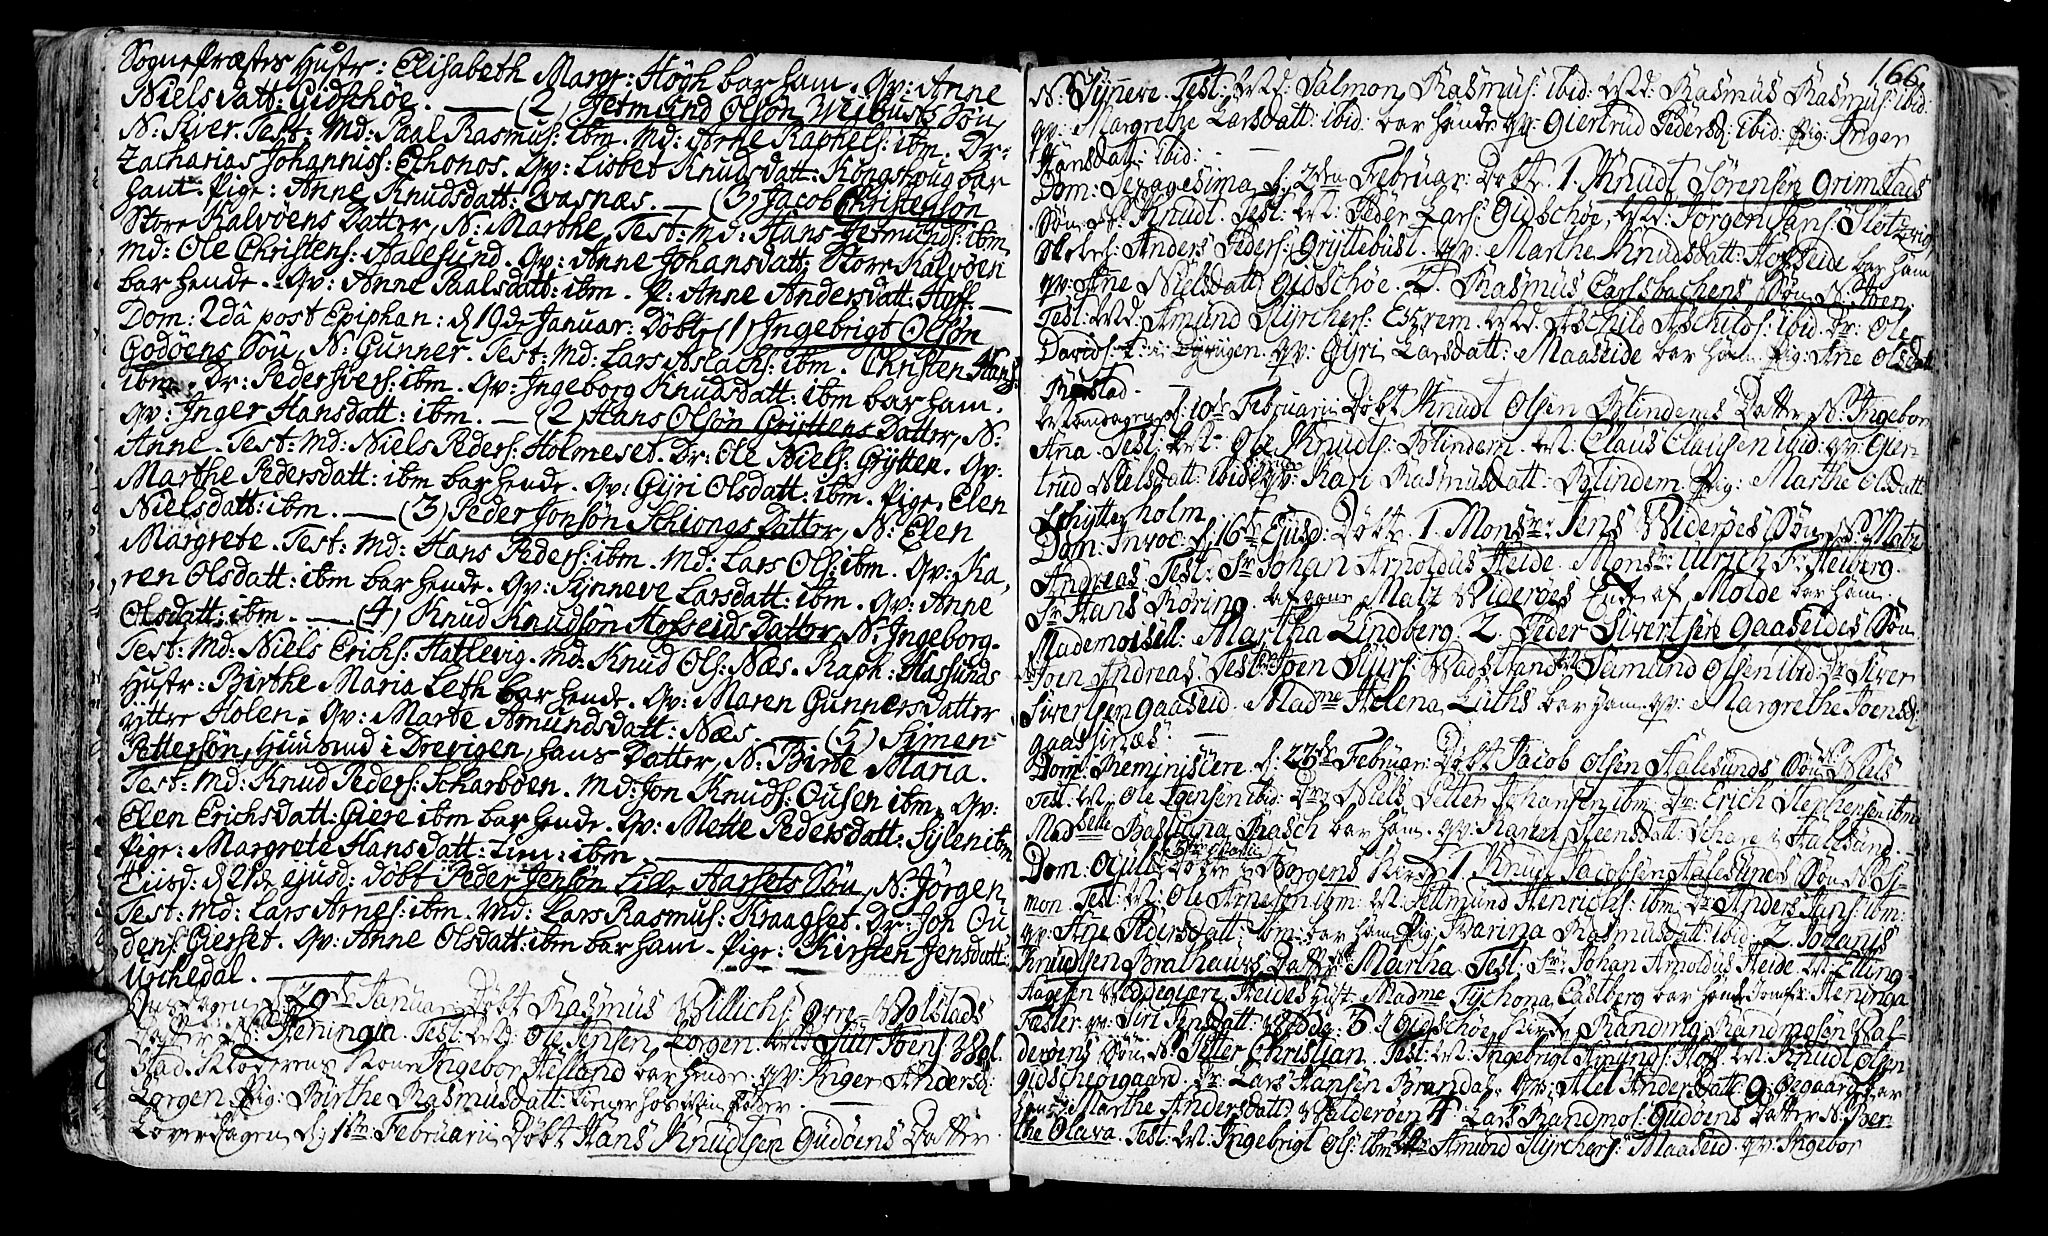 Sognepræstes Hustr: Elisabeth Margr: Høgh bar ham. Qv: Anne
Nielsdatt: Gidschöe. (2) Jetmund Olsön Weibusts Sön,
N: Siver. Test: Md: Paal Rasmus: ibm. Md: Arne Raphels: ibm. Dr:
Zacharias Johannis: Echonos. Qv: Lisbet Knudsdatt: Kongshoug bar
ham. Pige: Anne Knudsdatt: Qvasnæs. (3) Jacob Christensön
Store Kalvöens Datter, N: Marthe. Test: Md: Hans Jetmunds: ibm
Md: Ole Christens: Aalesund. Qv: Anne Johansdatt: Store Kalvöen
bar hende. Qv: Anne Paalsdatt: ibm. P: Anne Andersdatt: Hoff.
Dom: 2dâ post Epiphan: d 19de Januar: Döbt (1) Ingebrigt Olsön
Godöens Sön, N: Gunner. Test: Md: Lars Aslachs: ibm. Christen Hans:
ibm. Dr: Peder Ivers: ibm. Qv: Ingeborg Knudsdatt: ibm bar ham.
Qv: Inger Hansdatt: ibm. (2) Hans Olsön Gryttens Datter, N:
Anne. Test: Md: Niels Peders: Holmeset. Dr: Ole Niels: Grytten. Qv:
Marthe Pedersdatt: ibm bar hende. Qv: Gyri Olsdatt: ibm. Pige: Elen
Nielsdatt: ibm. (3) Peder Jonsön Schiongs Datter, N: Elen
Margrete. Test: Md: Hans Peders: ibm. Md: Lars Ols: ibm. Qv: Ka,
ren Olsdatt: ibm bar hende. Qv: Synneve Larsdatt: ibm. Qv: Anne
Olsdatt: ibm. (4) Knud Knudsön Hofseids Datter, N: Ingeborg.
Test: Md: Niels Erichs: Hattlevig. Md: Knud Ols: Næs. Raph: Hasfunds
Hustr: Birthe Maria Leth bar hende. Qv: Maren Gunnersdatter
Yttre Holen. Qv: Marte Amundsdatt: Næs. (5) Symen
Pettersön, Huusmd i Drevigen, hans Datter, N: Birte Maria.
Test: Md: Knud Peders: Scharböen. Md: Jon Knuds: Ousen ibm. Qv:
Elen Erichsdatt: Giere ibm bar hende. Qv: Mette Pedersdatt: Sylen ibm
Pige: Margrete Hansdatt: ibm
d 21de ejusd: döbt Peder Jensön Lille Aarsets Sön, N: Jörgen
Test: Md: Lars Arnes: ibm. Md: Lars Rasmus: Kraagset. Dr: Jon Ou
dens: Gierset. Qv: Anne Olsdatt: ibm bar ham. Pige: Kirsten Jensdatt:
Urchedal.
Onsdagen d 29de Januar: Döbt Rasmus Willichs:
Datter N: Heninga. Test: Md: Ole Jensen Lorgen. Md: Siur Joens:
stad. Kone Ingebor Helland bar hende. qv: Inger Andersd:
Lorgen. Pig: Birthe Rasmusdatt:
Löverdagen d: 1ste Februarii Döbt Hans Knudsen Gudöens Datter
166
N: Synneve. Test: Md: Salmon Rasmus: ibid: Md: Rasmus Rasmus: ibid:
qv: Margrethe Larsdatt: ibid: bar hende. qv: Giertrud Pedersd: ibid: Pig: Inger
Hansdatt: ibid:
Dom: Sexagesima d: 2den Februar: Döbt. 1. Knudt Sörensen Grimstads
Sön N: Knudt. Test: Md: Peder Lars: Gidschöe, Md: Jörgen Jans:
Anders Peders: Gryttebust. qv: Marthe Knudsdatt: Hofseide bar ham
qv: Ane Nielsdatt: Gidschöe. 2. Rasmus Carlsbachens Sön N: Joen.
Test: Md: Amund Styrchers: Eszrem. Md: Aschild Aschilds: ibid: Dr: Ole
Davids: qv: Gyri Larsdatt: Maaseide bar ham. Pig: Ane Olsdatt:
Mandagen d: 10de Februarii Döbt Knudt Olsen Blindems Datter N: Ingebor
Ana. Test: Md: Ole Knudts: Blindem. Md: Claus Clausen ibid: qv: Gier-
trud Nielsdatt: ibid: qv: Kari Rasmusdatt: Blindem. Pig: Marthe Olsdatt:
Schytterholm
Dom: Invoc: d: 16de Ejusd: Döbt. 1. Monsr: Jens Wideröes Sön N: Matz
Andreas. Test: Sr: Johan Arnoldus Heide. Monsr: Ulrich Fr: Heiberg.
Sr Hans Röring. Matz Wideröes Enke af Molde bar ham.
Mademoisell: Martha Lindberg. 2. Peder Sivertsens Gaaseides Sön
N: Joen Andreas. Test: Joen Siurs: Vadstrand. Md: Semund Olsen ibid: Dr: Siver
Sivertsen Gaaseid. Madme Helena Luths bar ham. qv: Margrethe Joensd:
Gaassnæs.
Dom: Reminiscere. d: 23de Februar: Döbt Jacob Olsen Aalesunds Sön N: Niels
Test: Md: Ole Jensen ibid: Dr: Niels Petter Johansen ibm: Dr: Erich Stephensen ibm
Madselle Bastiana Rasch bar ham. qv: Karen Steensdatt: Schare i Aalesund.
Dom: Oculi Döbt i Borgens Kirke 1. Knud Jacobsen Aalesunds Sön N: Si-
mon. Test: Md: Ole Arnesen ibm: Md: Jettmund Henrichs: ibm: Dr: Anders Jans: ibm:
qv: Ane Pedersdatt: ibm: bar ham. Pig: Karina Rasmusdatt: ibid: 2. Johanis
Knudsen Bralhaugs Datter N: Martha. Test: Sr: Johan Arnoldus Heide. Md: Elling
Hagesen Weddegiære. Heides Hust: Madme Tychona Castberg bar hende. Jomfr: Heninga
Fæster. qv: Siri Jensdatt: Wedde: 3. i Gidschöe Kirke Randmg Randmosön Val-
deröens Sön N: Petter Christian. Test: Md: Ingebrigt Amunds: Hoff. Md: Knudt Olsen
Gidschöegaard. Dr: Lars Hansen Brandal. qv: Alet Andersdatt: Öegaard bar
ham. Marthe Andersdatt: Walderöen. 4. Lars Randmos: Gudöens Datter N: Ber-
the Olava. Test: Md: Ingebrigt Ols: ibm Md: Amund Styrchers: Maaseid. qv: Ingebor